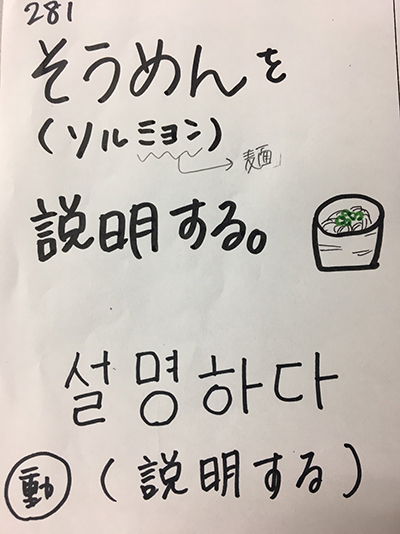 281
そうめんを
(ソルミョン)
麺」
説明する。
설명하다
動 (説明する)